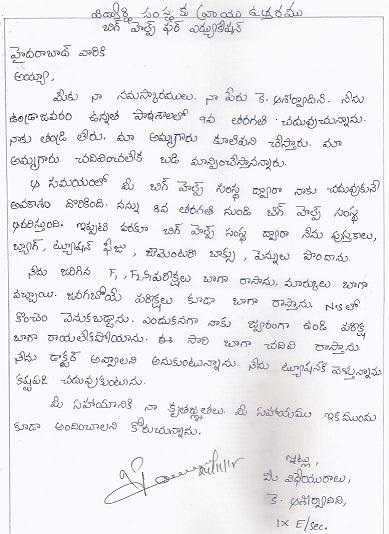 విద్యార్థి సంస్థకు వ్రాయు ఉత్తరము
బిగ్ హెల్ప్ ఫర్ ఎడ్యుకేషన్
హైదరాబాద్ వారికి
అయ్యా,
మీకు నా నమస్కారములు. నా పేరు కె. ఆశీర్వాదిని. నేను
ఉండ్రాజవరం ఉన్నత పాఠశాలలో 9వ తరగతి చదువుచున్నాను.
నాకు తండ్రి లేరు. మా అమ్మగారు కూలిపని చేస్తారు. మా
అమ్మగారు చదివించలేక బడి మాన్పించేస్తానన్నారు.
ఆ సమయంలో మీ బిగ్ హెల్ప్ సంస్థ ద్వారా నాకు చదువుకునే
అవకాశం దొరికింది. నన్ను 8వ తరగతి నుండి బిగ్ హెల్ప్ సంస్థ
చదివిస్తుంది. ఇప్పటి వరకూ బిగ్ హెల్ప్ సంస్థ ద్వారా నేను పుస్తకాలు,
బ్యాగ్, ట్యూషన్ ఫీజు, జామెంటరీ బాక్సు, పెన్నులు పొందాను.
నేను జరిగిన F1, F2 పరీక్షలు బాగా రాసాను. మార్కులు బాగా
వచ్చాయి. జరగబోయే పరీక్షలు కూడా బాగా రాస్తాను. N.S లో
కొంచెం వెనుకబడ్డాను. ఎందుకనగా నాకు జ్వరంగా ఉండి పరీక్ష
బాగా రాయలేకపోయాను. ఈ సారి బాగా చదివి రాస్తాను.
నేను డాక్టర్ అవ్వాలని అనుకుంటున్నాను. నేను ట్యూషన్‌కి వెళ్తున్నాను
కష్టపడి చదువుకుంటాను.
మీ సహాయానికి నా కృతజ్ఞతలు. మీ సహాయము ఇకముందు
కూడా అందించాలని కోరుచున్నాను.
ఇట్లు,
మీ విధేయురాలు,
కె. ఆశీర్వాదిని,
IX E/sec.